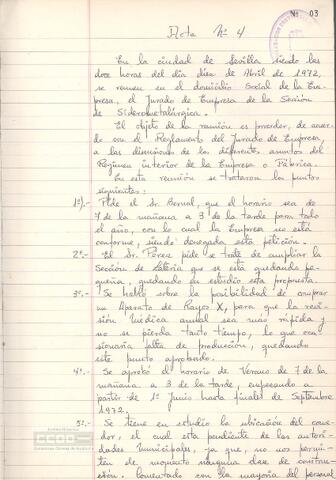 Nº 03
Acta Nº 4
En la ciudad de Sevilla siendo las
doce horas del día diez de Abril de 1972,
se reunen en el domicilio Social de la Em-
presa, el Jurado de Empresa de la Sección
de Siderometalúrgica.
El objeto de la reunión es proceder, de acuer
do con el Reglamento del Jurado de Empresa,
a las discusiones de los diferentes asuntos del
Regimen interior de la Empresa o Fábrica.
En esta reunión se trataron los puntos
siguientes:
1º).- Pide el Sr. Bernal, que el horario sea de
7 de la mañana a 3 de la tarde para todo
el año, con lo cual la Empresa no está
conforme, siendo denegada esta petición.
2º.- El Sr. Pérez pide se trate de ampliar la
Sección de Latería que se está quedando pe-
queña, quedando en estudio esta propuesta.
3º.- Se habló sobre la posibilidad de comprar
un Aparato de Rayos X, para que la revi-
sión Médica anual sea más rápida y
no se pierda tanto tiempo, lo que oca-
sionaría falta de producción, quedando
este punto aprobado.
4º.- Se aprobó el horario de Verano de 7 de la
mañana a 3 de la tarde, empezando a
partir de 1º Junio hasta finales de Septiembre
1972.
5º.- Se tiene en estudio la ubicación del come-
dor, el cual esta pendiente de las autori-
dades Municipales, ya que, no nos permi-
ten de momento ninguna clase de construc-
ción. Comentado con la mayoría del personal
CCOO